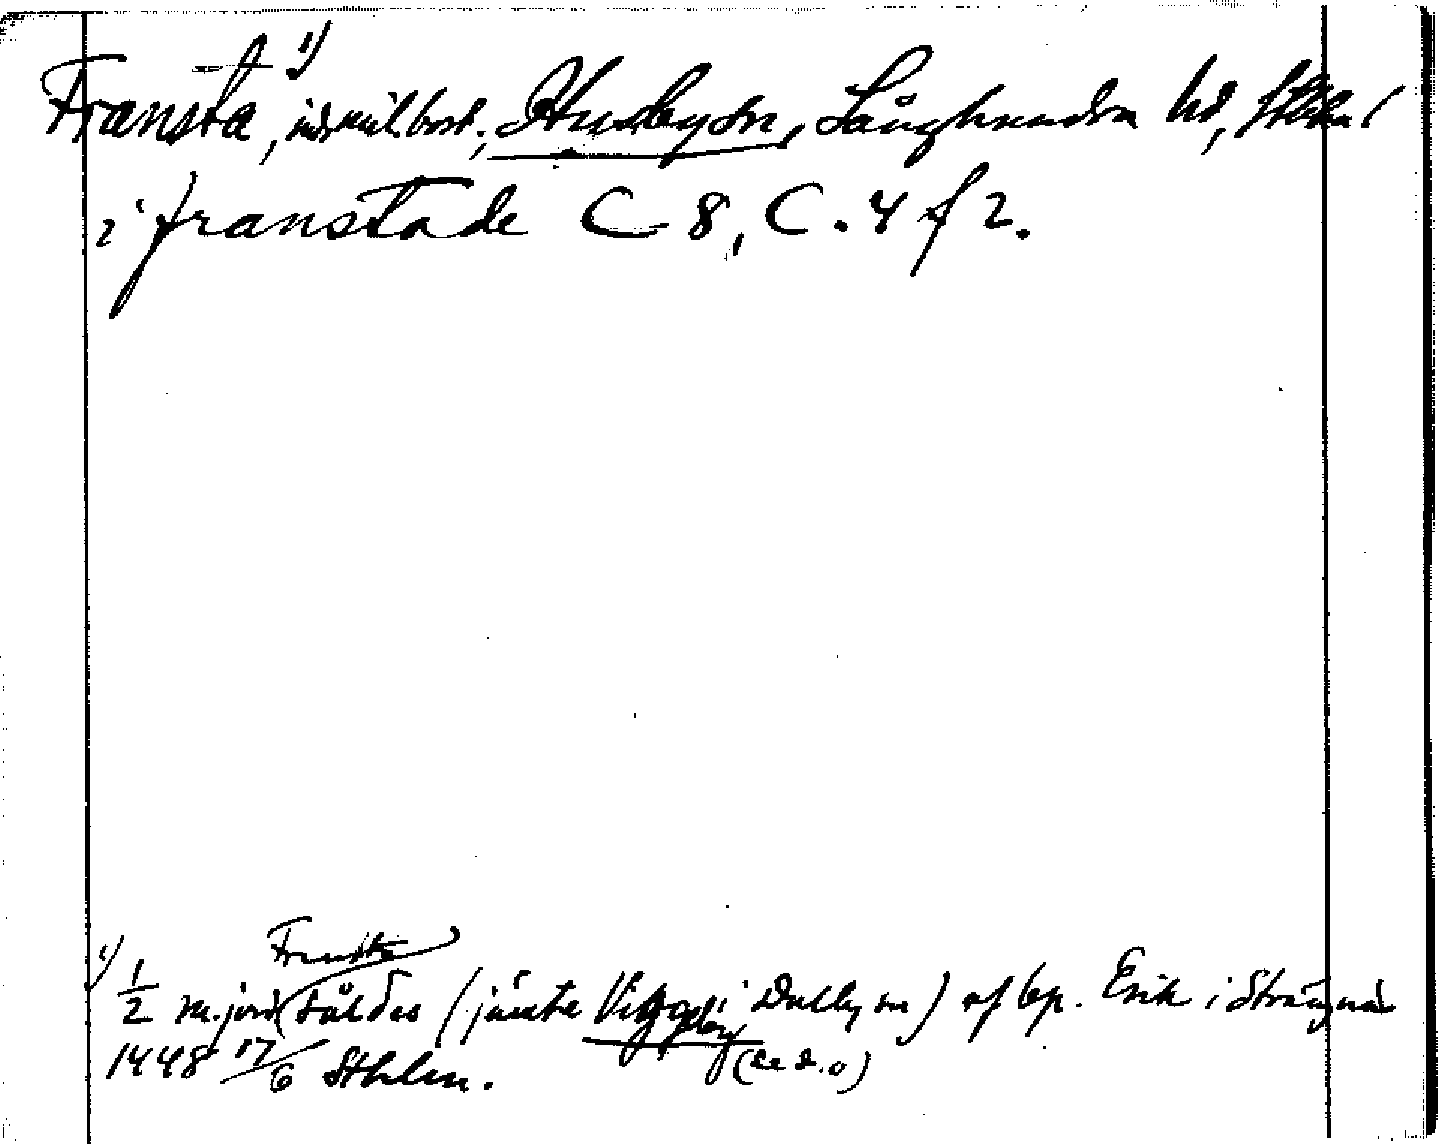 Fransta 1), Husby sn, Långhundra hd, Sthlm l
i franstade C 8, C. 4 f 2.
1) 1/2 m. jord Fransta såldes (jämte Viggeby i Dalby sn) af bp. Erik i Strängnäs
1448 17/6 Sthlm. (se d. o)